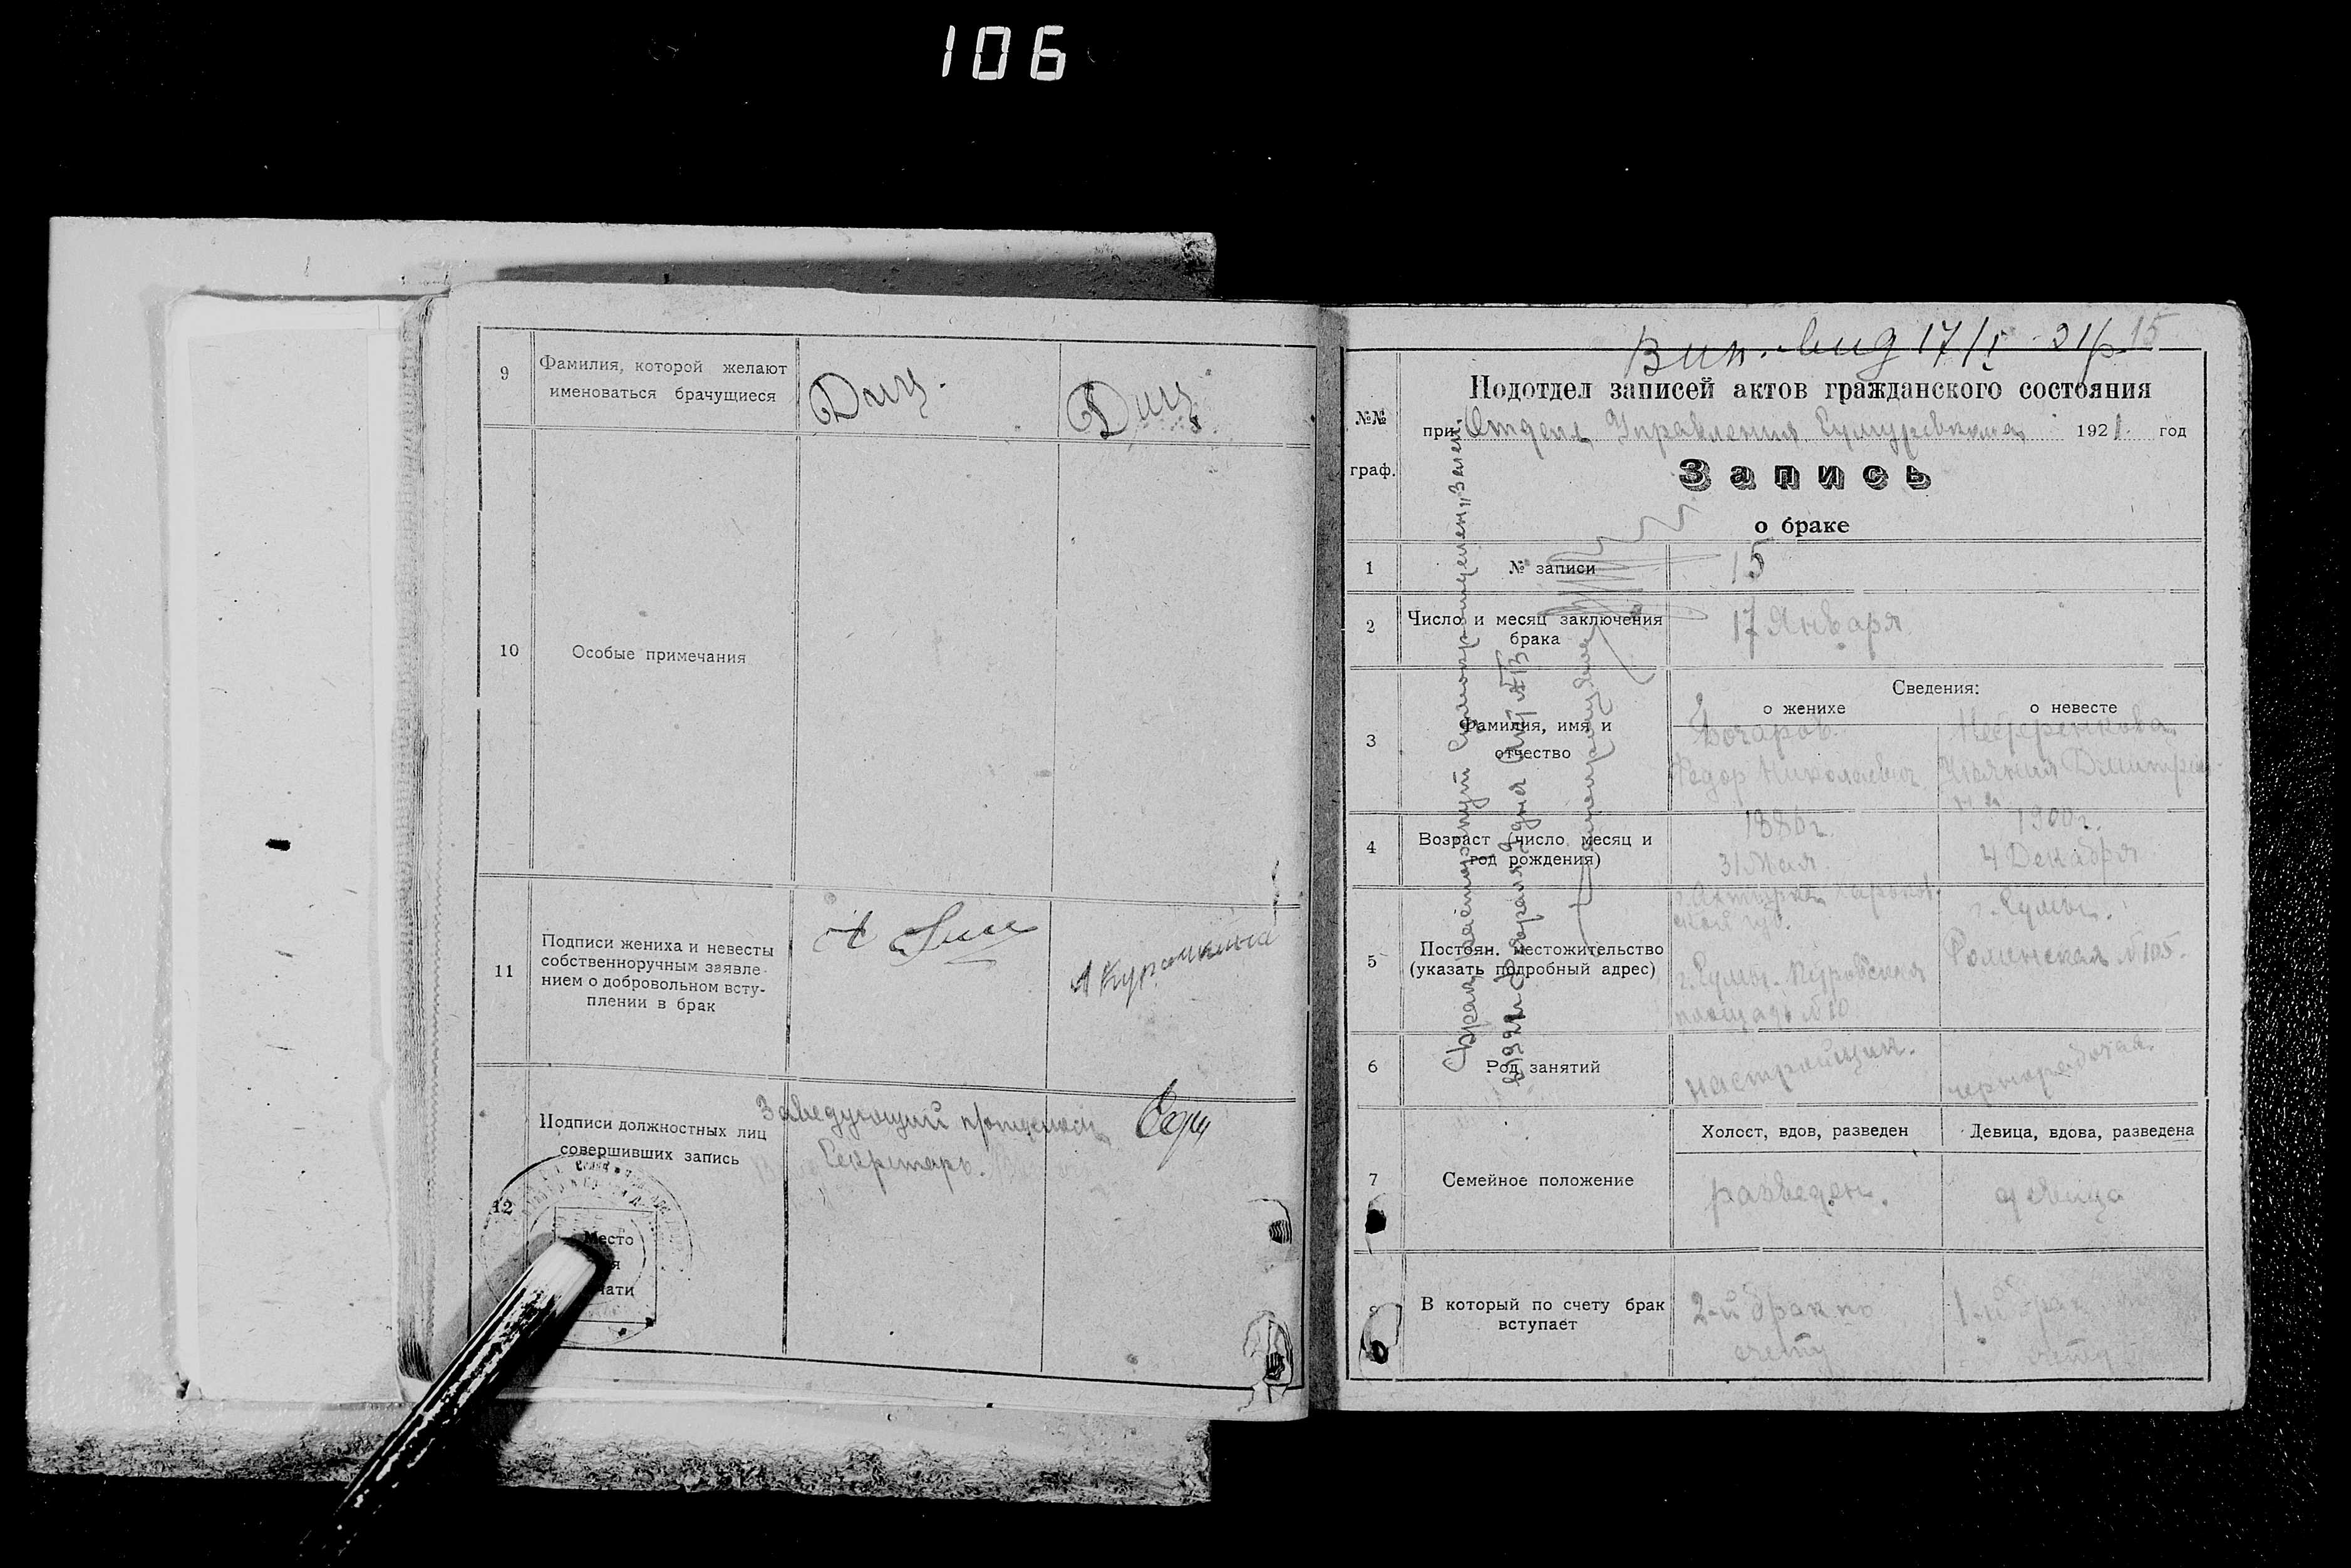 106
9
Фамилия, которой желают
именоваться брачущиеся
Диц.
Диц
10
Особые примечания
11
Подписи жениха и невесты
собственноручным заявле-
нием о добровольном всту-
плении в брак
12
Подписи должностных лиц
совершивших запись
Заведующий
Секретарь.
Место
я
чати
17/I 21 15
№№
граф.
Подотдел записей актов гражданского состояния
при Отделе Управления 1921. год
Запись
о браке
1
№ записи
15
2
Число и месяц заключения
брака
17 Января
3
Фамилия, имя и
отчество
Сведения:
о женихе
о невесте
Бочаров
Федор Николаевич
Дмитриев
на
4
Возраст (число, месяц и
год рождения)
1880 г.
31 Мая.
1900 г.
4 Декабря
5
Постоян. местожительство
(указать подробный адрес)
г. Ахтырка Харьков
ской губ.
г. Сумы. Покровская
площадь № 10
г. Сумы.
Роменская № 105.
6
Род занятий
настройщик.
чернорабочая
7
Семейное положение
Холост, вдов, разведен
Девица, вдова, разведена
разведен.
девица
8
В который по счету брак
вступает
2-й брак по
счету
1-й брак
счету
Брак расторгнут
1922 г. Февраля дня